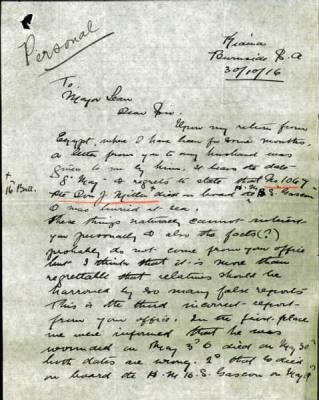 Personal
Kiama
Burnside S. A
30/10/16
To
Major Lean
Dear Sir.
Upon my return from
Egypt, where I have been for some months,
a letter from you to my husband was
given to me by him, it bears the date
8th May & regrets to state that No 1067
+
16 Batt.
Pte died on board H.M.H.S. Gascon
& was buried at sea.
These things naturally cannot interest
you personally & also the facts(?)
probably do not come from your office
but I think that it is more than
regrettable that relatives should be
harrowed by so many false reports
This is the third incorrect report
from your office. In the first place
we were informed that he was
wounded on May 3rd & died on May 30th
both dates are wrong. 2nd that he died
on board the H. M. H. S. Gascon on May